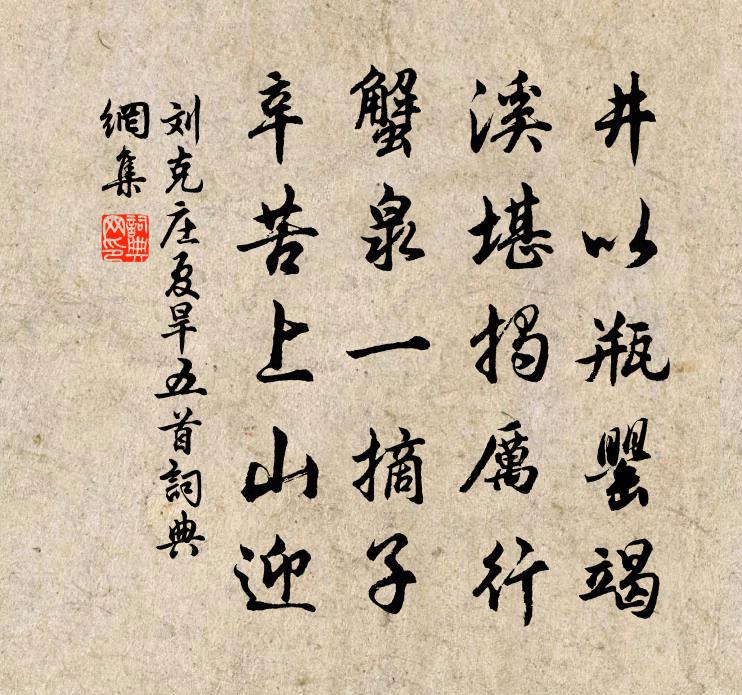 井以瓶罂竭
溪堪揭厲行
蟹泉一摘子
辛苦上山迎
刘克庄夏旱五首詞典
網集
詞典
网印